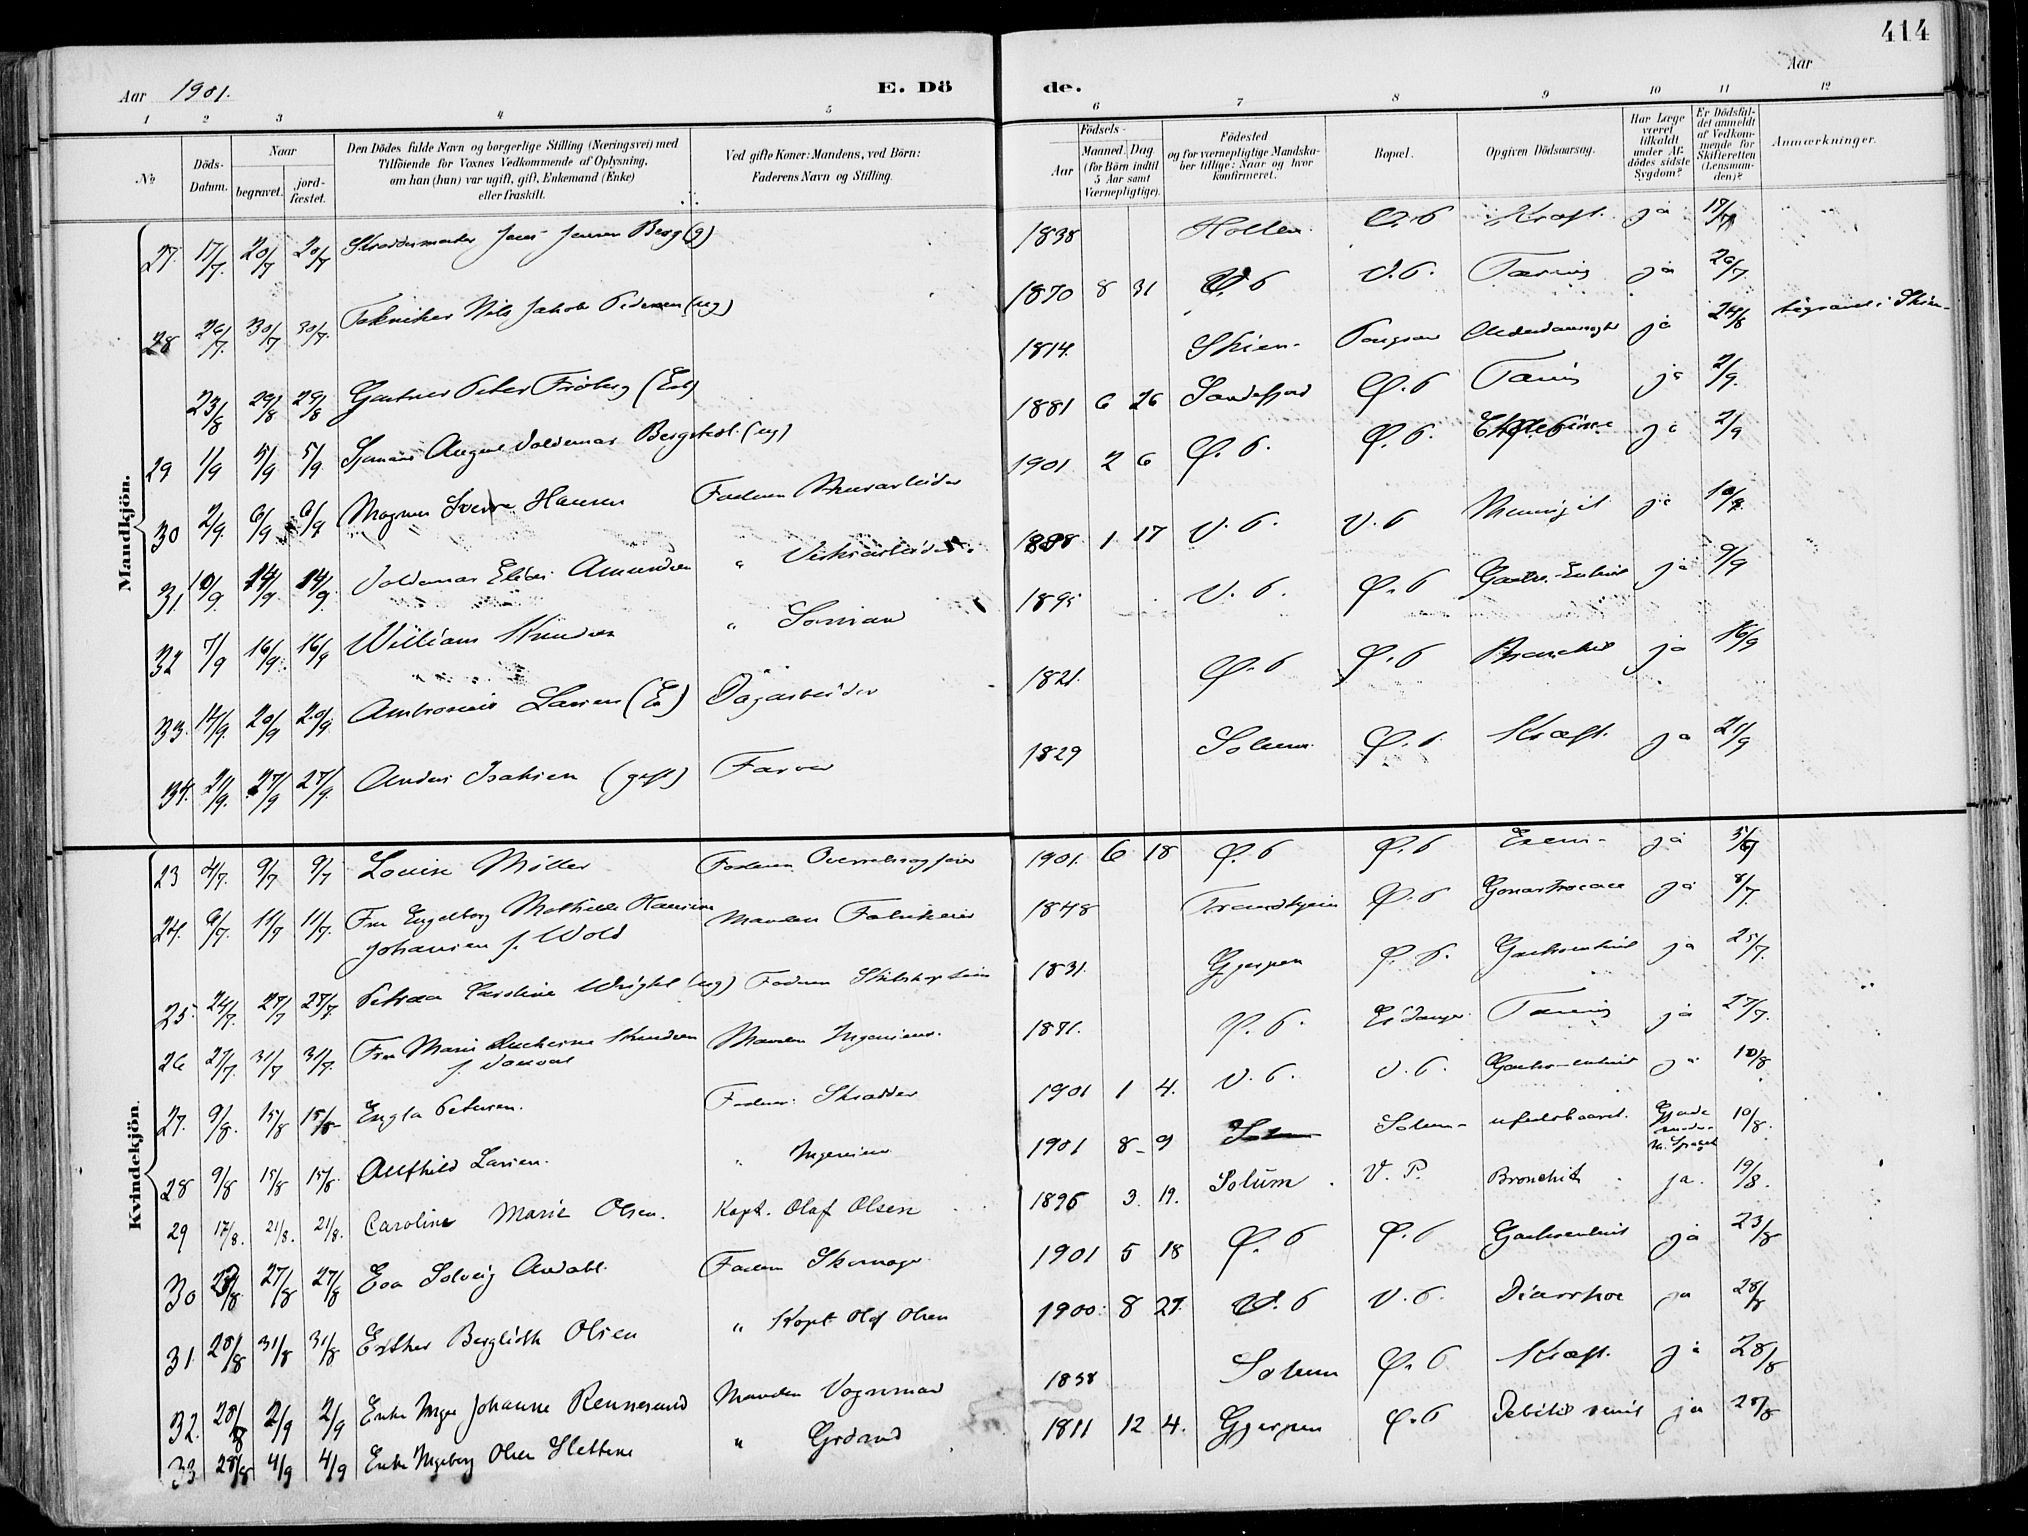 414
Aar 1901.
E. Dö
de.
Aar
1 2 3 4 5 6 7 8 9 10 11 12
No
Döds-Datum.
Naar
begravet.
jord-fæstet.
Den Dödes fulde Navn og borgerlige Stilling (Næringsvei) med
Tilföiende for Voxnes Vedkommende af Oplysning,
om han (hun) var ugift, gift, Enkemand (Enke)
eller fraskilt.
Ved gifte Koner: Mandens, ved Börn:
Faderens Navn og Stilling.
Födsels-
Aar
Maaned. Dag
(for Börn indtil
5 Aar samt
Værnepligtige).
Födested
og for værnepligtige Mandska-
ber tillige: Naar og hvor
konfirmeret.
Bopæl.
Opgiven Dödsaarsag.
Har Læge
været
tilkaldt
under Af-
dödes sidste
Sygdom?
Er Dödsfal-
det anmeldt
af Vedkom-
mende for
Skifteretten
(Lensman-
den)?
Anmærkninger.
Mandkjön.
27 17/7 20/7 20/7 Skreddermester Jens Jensen Berg (g) 1838 Holten Ø. P Kræft. ja 17/7
28 26/7 30/7 30/7 Tekniker Nils Jakob Pedersen (ug) 1870 8 31 V. P V. P. Tæring ja 26/7
23/8 29/8 29/8 Gartner Peter Fröberg (Enk) 1814 Skien Alderdomssvaghed ja 24/8 begravet i Skien
29 1/9 5/9 5/9 Sjömand August Valdemar Bergstedt (ug) 1881 6 26 Sandefjord Ø. P Tæring ja 2/9
30 2/9 6/9 6/9 Magnus Sverre Hansen Faderen Murarbeider 1901 2 6 Ø. P. Ø. P. ja 2/9
31 10/9 14/9 14/9 Valdemar Elias Amundsen " Verksarbeider 1898 1 17 V. P. V. P Meningit ja 10/9
32 7/9 16/9 16/9 William Knudsen " Sömand 1895 V. P. Ø. P Gastro-Enterit ja 9/9
33 14/9 20/9 20/9 Ambrosius Larsen (E) Dagarbeider 1821 Ø. P Ø. P Bronchit ja 16/9
34 21/9 27/9 27/9 Anders Isaksen (gift) Farver 1829 Solum Ø. P. Kræft. ja 21/9
Kvindekjön.
23 4/7 9/7 9/7 Louise Möller Faderen 1901 6 18 Ø. P Ø. P ja 5/7
24 6/7 11/7 11/7 Fru Engelborg Mathilde Hansine
Johansen f. Wold Manden Fabrikeier 1848 Trondhjem Ø. P Gonartrocace ja 8/7
25 24/7 28/7 28/7 Petrea Caroline Wright (ug) Faderen Skibskaptein 1831 Gjerpen Ø. P. Gastroenterit ja 25/7
26 27/7 31/7 31/7 Fru Marie Knudsen Manden Ingeniör 1871 Ø. P. Eidanger Tæring ja 27/7
27 9/8 15/8 15/8 Engla Petersen. Faderen Skrædder 1901 1 4. V. P. V. P. Gastro-enterit ja 10/8
28 9/8 15/8 15/8 Alfhild Larsen. " Ingeniör 1901 8 9 Solum Solum ufuldbaaren. 10/8
29 17/8. 21/8. 21/8. Caroline Marie Olsen. Kapt. Olaf Olsen 1896 3. 19. Solum V. P. Bronchit ja. 19/8.
30 27/8 27/8 Eva Solveig Faderen Skomager 1901 5 18 Ø. P Ø. P Gastroenterit ja 23/8
31 28/8 31/8 31/8 Esther Berglioth Olsen " Kapt Olaf Olsen 1900 8 27. V. P V. P. Diarrhoe ja 28/8
32. 28/8 2/9 2/9 Enke Inger Johanne Rennesund Manden Vognmand 1838 Solum Ø. P Kræft. ja 28/8
33 28/8 4/9 4/9 Enke Ingeborg Olsen Slettene " Grdmd 1811 12 4. Gjerpen Ø. P Debilit. senil ja 28/8